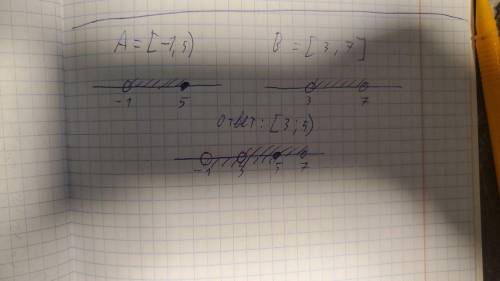 A = [-1,5) B = [3,7]
-1 5 3 7
ответ: [3;5)
-1 3 5 7